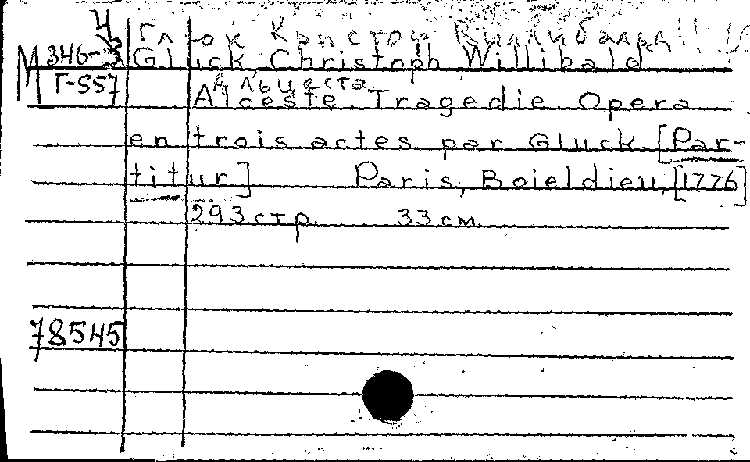 Ч Глюк Кристоф Виллибальд
М 346-3 Gluck Christoph Willibald
Г-557 Альцеста
Alceste. Tragedie Opera
en trois actes par Gluck [Par-
titur] Paris, Boieldieu, [1776]
293 стр. 33 см.
78545